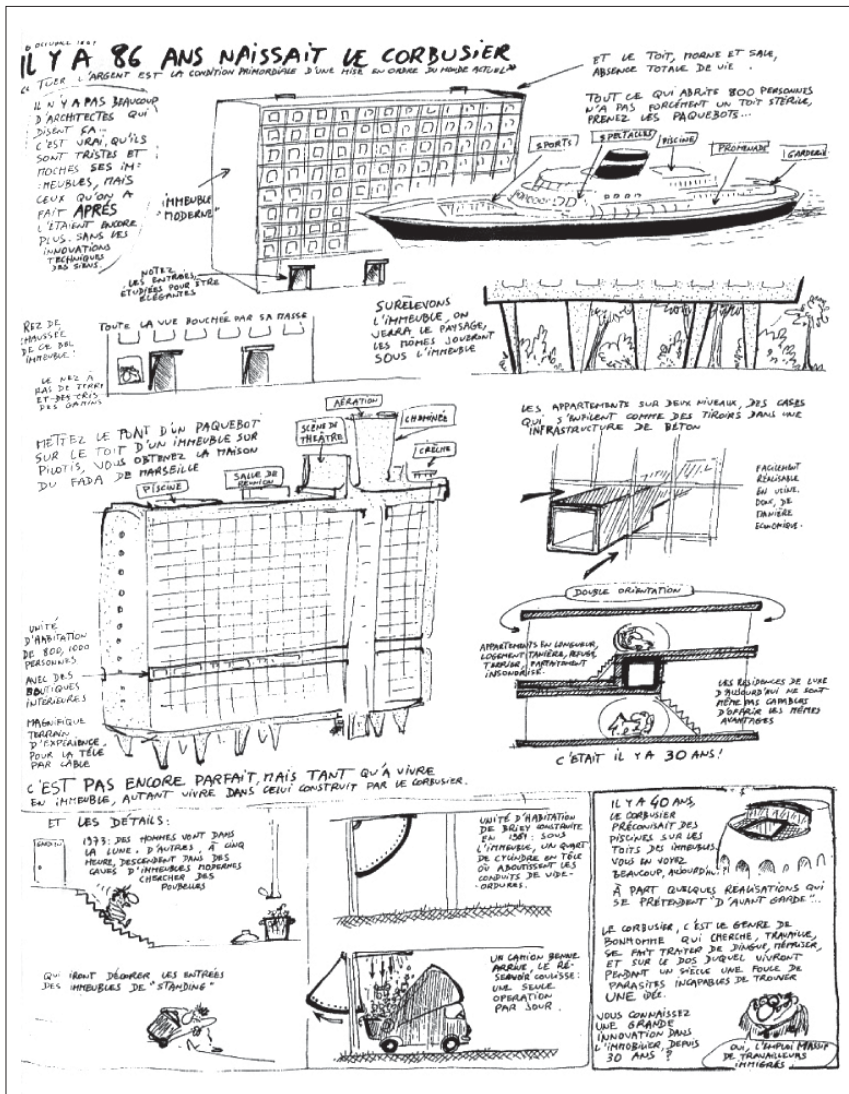 IL Y A 86 ANS NAISSAIT LE CORBUSIER
TUER L'ARGENT EST LA CONDITION PRIMORDIALE D'UNE MISE EN ORDRE DU MONDE ACTUEL»
IL N'Y A PAS BEAUCOUP
D'ARCHITECTES QUI
DISENT ÇA...
C'EST VRAI, QU'ILS
SONT TRISTES ET
MOCHES SES IM-
MEUBLES, MAIS
CEUX QU'ON A
FAIT APRÈS
L'ÉTAIENT ENCORE
PLUS. SANS LES
INNOVATIONS
TECHNIQUES
DES SIENS.
IMMEUBLE
"MODERNE"
NOTEZ
LES ENTRÉES,
ÉTUDIÉES POUR ÊTRE
ÉLÉGANTES
ET LE TOIT, MORNE ET SALE,
ABSENCE TOTALE DE VIE.
TOUT CE QUI ABRITE 800 PERSONNES
N'A PAS FORCÉMENT UN TOIT STÉRILE,
PRENEZ LES PAQUEBOTS...
SPORTS
SPECTACLES
PISCINE
PROMENADE
GARDERIE
REZ DE
CHAUSSÉE
DE CE BEL
IMMEUBLE:
TOUTE LA VUE BOUCHÉE PAR SA MASSE
LE NEZ À
RAS DE TERRE
ET DES CRIS
DES GAMINS
SURÉLEVONS
L'IMMEUBLE, ON
VERRA LE PAYSAGE,
LES MÔMES JOUERONT
SOUS L'IMMEUBLE
METTEZ LE PONT D'UN PAQUEBOT
SUR LE TOIT D'UN IMMEUBLE SUR
PILOTIS, VOUS OBTENEZ LA MAISON
DU FADA DE MARSEILLE
PISCINE
SALLE DE
RÉUNION
SCÈNE DE
THÉÂTRE
AÉRATION
CHEMINÉE
CRÈCHE
UNITÉ
D'HABITATION
DE 800, 1000
PERSONNES
AVEC DES
BOUTIQUES
INTÉRIEURES
MAGNIFIQUE
TERRAIN
D'EXPÉRIENCE
POUR LA TÉLÉ
PAR CÂBLE
LES APPARTEMENTS SUR DEUX NIVEAUX, DES CASES
QUI S'ENFILENT COMME DES TIROIRS DANS UNE
INFRASTRUCTURE DE BÉTON
FACILEMENT
RÉALISABLE
EN USINE.
DONC, DE
MANIÈRE
ÉCONOMIQUE.
DOUBLE ORIENTATION
APPARTEMENTS EN LONGUEUR,
LOGEMENT TANIÈRE, REFUGE,
TERRIER, PARFAITEMENT
INSONORISÉ.
LES RÉSIDENCES DE LUXE
D'AUJOURD'HUI NE SONT
MÊME PAS CAPABLES
D'OFFRIR LES MÊMES
AVANTAGES
C'ÉTAIT IL Y A 30 ANS!
C'EST PAS ENCORE PARFAIT, MAIS TANT QU'À VIVRE
EN IMMEUBLE, AUTANT VIVRE DANS CELUI CONSTRUIT PAR LE CORBUSIER.
ET LES DÉTAILS:
1973: DES HOMMES VONT DANS
LA LUNE. D'AUTRES, À CINQ
HEURE, DESCENDENT DANS DES
CAVES D'IMMEUBLES MODERNES
CHERCHER DES
POUBELLES
QUI IRONT DÉCORER LES ENTRÉES
DES IMMEUBLES DE "STANDING"
UNITÉ D'HABITATION
DE BRIEY CONSTRUITE
EN 1961: SOUS
L'IMMEUBLE, UN QUART
DE CYLINDRE EN TÔLE
OÙ ABOUTISSENT LES
CONDUITS DE VIDE-
ORDURES.
UN CAMION BENNE
ARRIVE, LE RÉ-
SERVOIR COULISSE:
UNE SEULE
OPERATION
PAR JOUR.
IL Y A 40 ANS,
LE CORBUSIER
PRÉCONISAIT DES
PISCINES SUR LES
TOITS DES IMMEUBLES
VOUS EN VOYEZ
BEAUCOUP, AUJOURD'HUI?
À PART QUELQUES RÉALISATIONS QUI
SE PRÉTENDENT "D'AVANT GARDE"...
LE CORBUSIER, C'EST LE GENRE DE
BONHOMME QUI CHERCHE, TRAVAILLE,
SE FAIT TRAITER DE DINGUE, MÉPRISER,
ET SUR LE DOS DUQUEL VIVRONT
PENDANT UN SIÈCLE UNE FOULE DE
PARASITES INCAPABLES DE TROUVER
UNE IDÉE.
VOUS CONNAISSEZ
UNE GRANDE
INNOVATION DANS
L'IMMOBILIER, DEPUIS
30 ANS?
OUI, L'EMPLOI MASSIF
DE TRAVAILLEURS
IMMIGRÉS